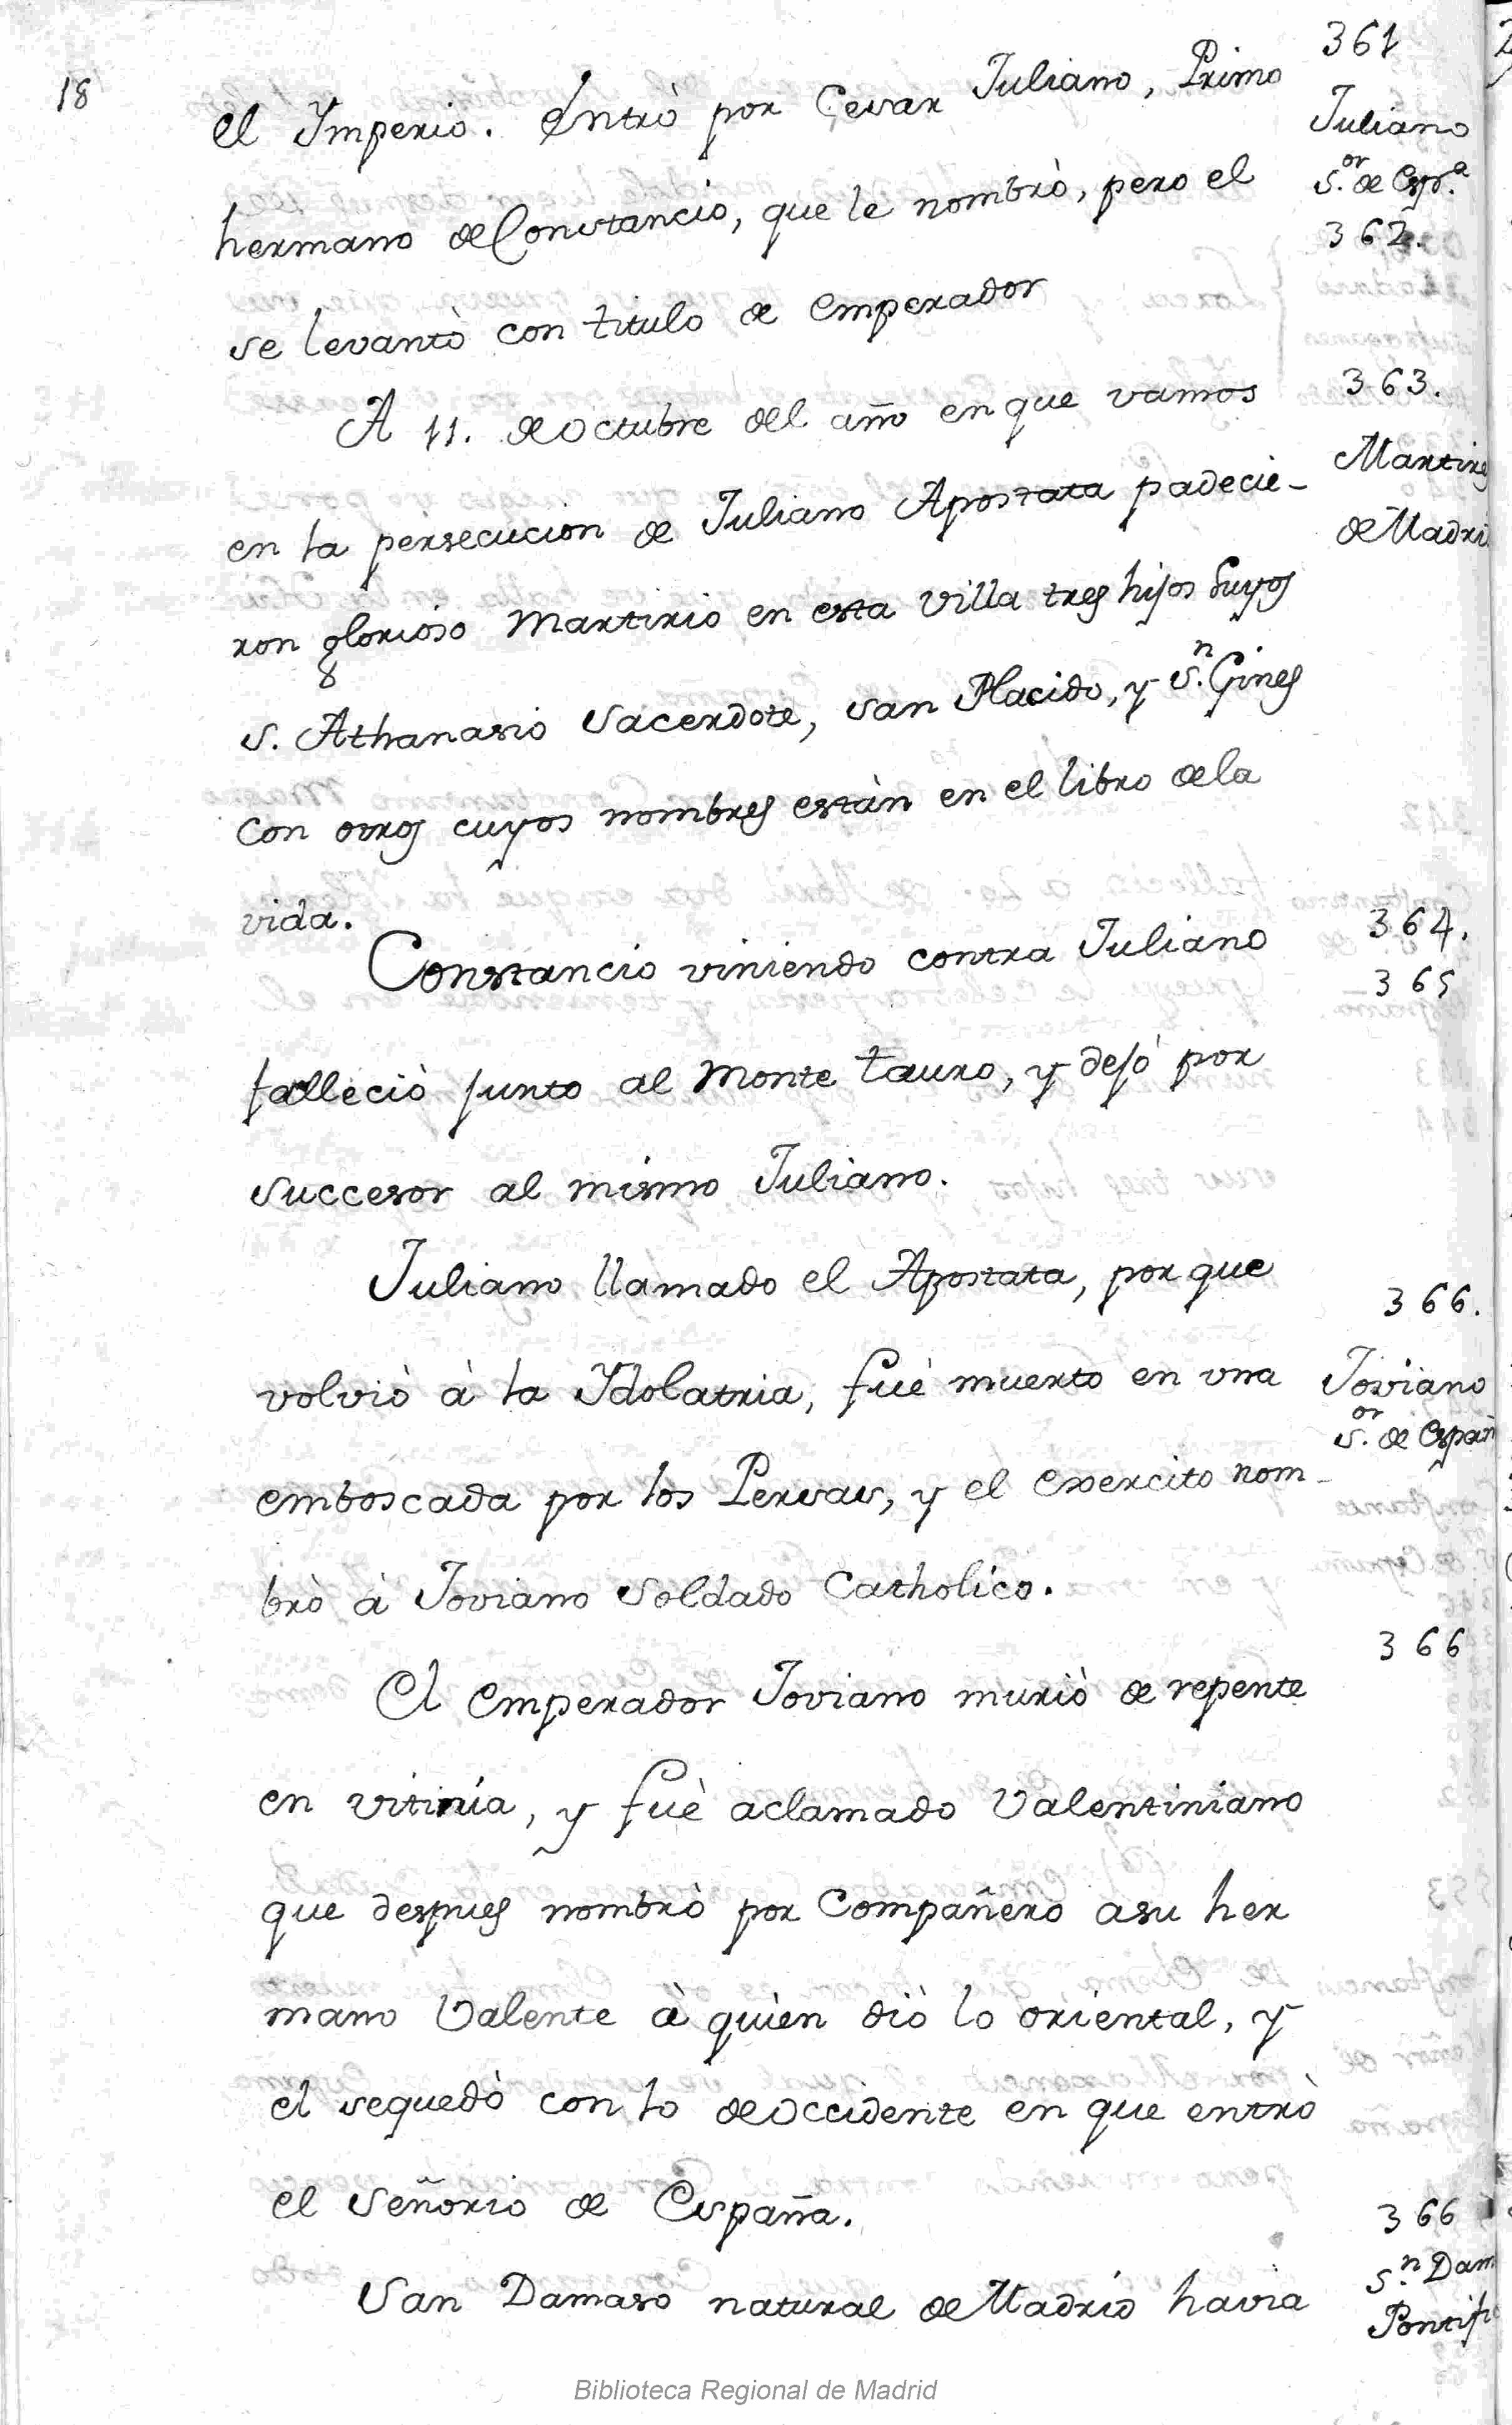 18
361
el Ymperio. Entrò por Cesar Juliano, Primo
Juliano
S.or de Esp.a
hermano de Constancio, que le nombrò, pero el
362.
se levantò con titulo de emperador
363.
A 11. de octubre del año en que vamos
Martires
en la persecucion de Juliano Apostata padecie-
de Madri
ron glorioso Martirio en esta Villa tres hijos Suyos
s. Athanasio Sacerdote, san Placido, y S.n Gines
Con otros cuyos nombres estàn en el libro de la
vida.
364.
Constancio viniendo contra Juliano
365
falleciò junto al Monte tauro, y dejò por
succesor al mismo Juliano.
Juliano llamado el Apostata, por que
366.
volviò à la Ydolatria, fuè muerto en una
Joviano
S.or de Españ
emboscada por los Persas, y el exercito nom-
brò à Joviano Soldado Catholico.
366
El emperador Joviano muriò de repente
en vitinia, y fuè aclamado Valentiniano
que despues nombrò por Compañero asu her
mano Valente à quien diò lo oriental, y
el sequedò con lo de occidente en que entrò
el Señorio de España.
366
S.n Dam
San Damaso natural de Madrid havia
Pontifi
Biblioteca Regional de Madrid